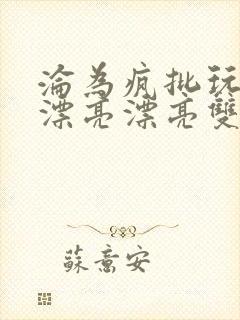 淪為瘋批玩
漂亮漂亮雙
蘇意安